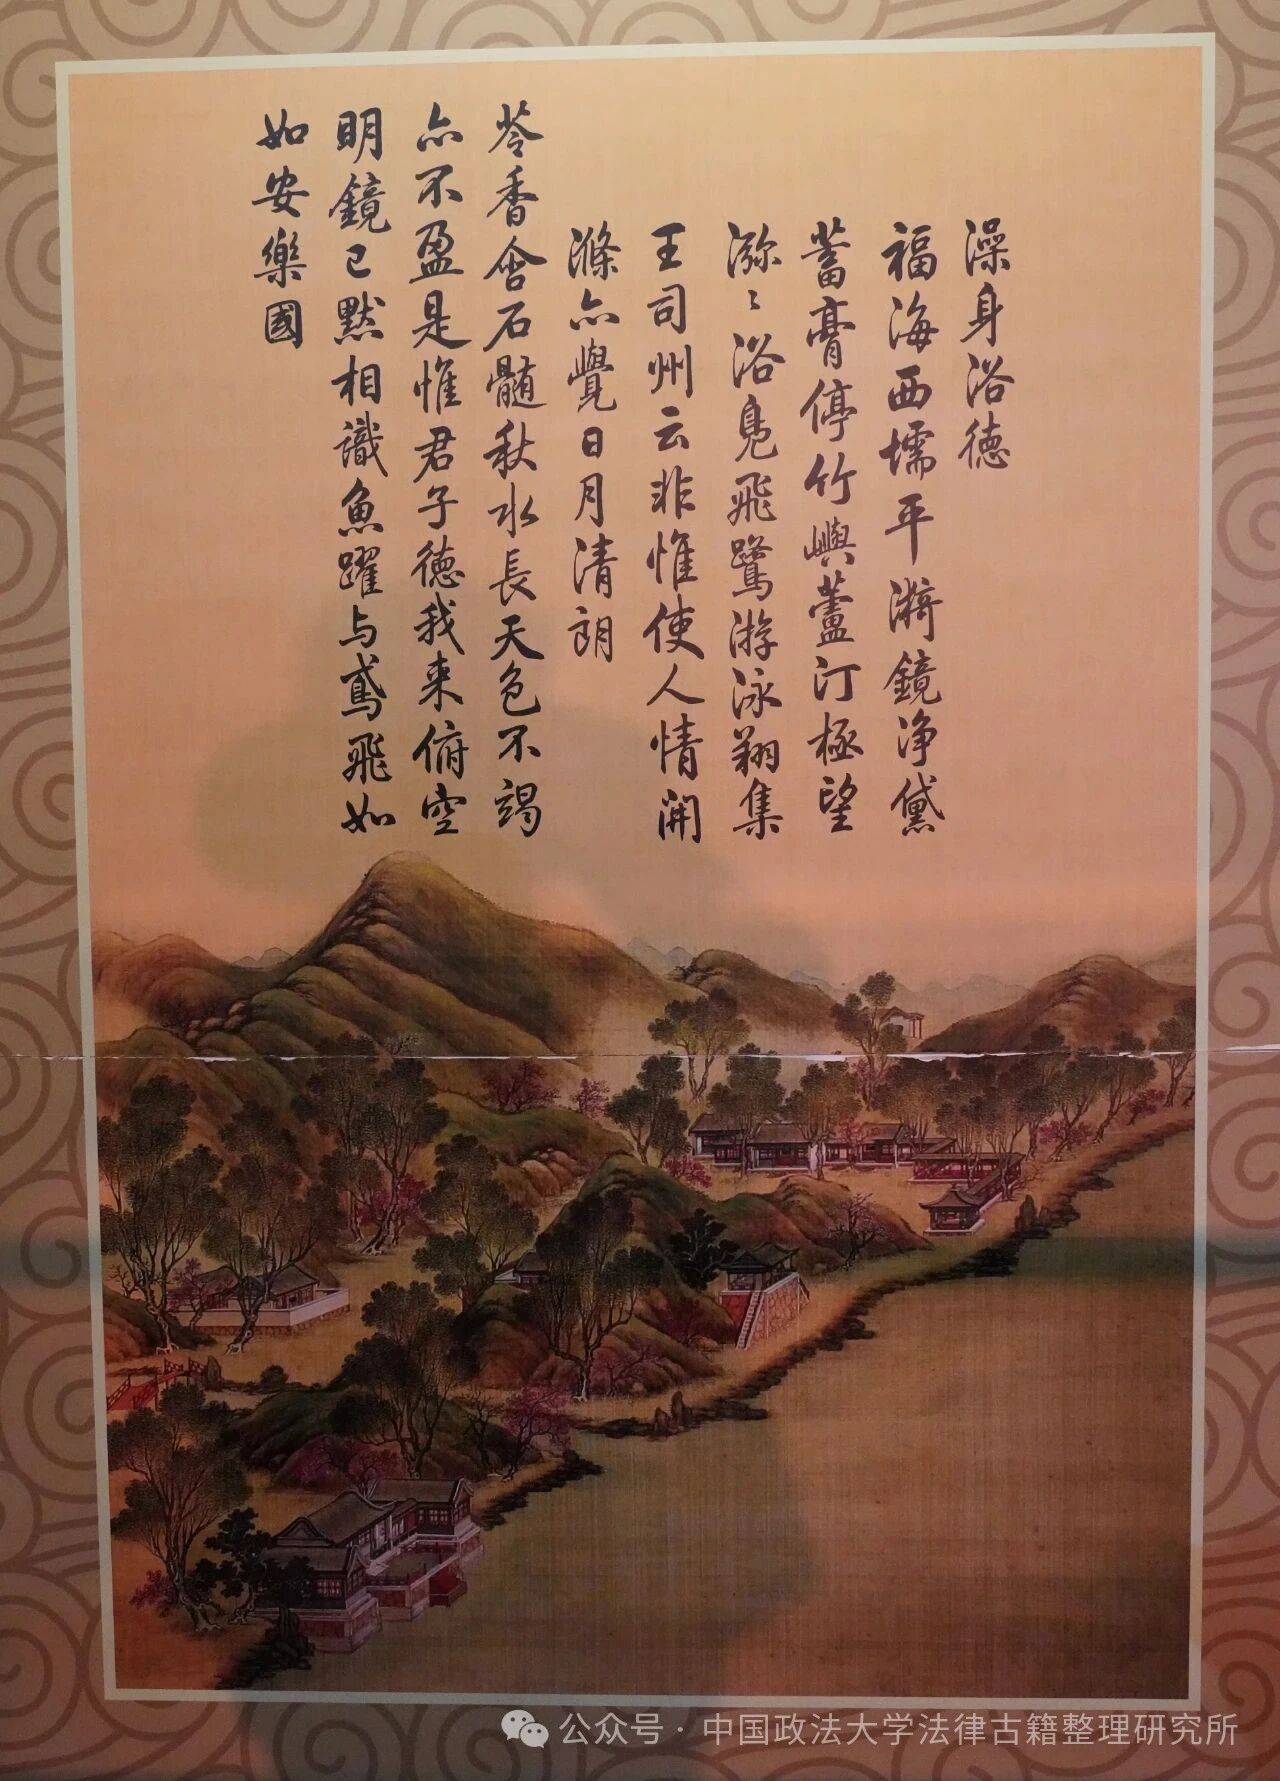 澡身浴德
福海西壖平漪鏡浄黛
蓄膏停竹嶼蘆汀極望
瀰〻浴鳧飛鷺游泳翔集
王司州云非惟使人情開
滌亦覺日月清朗
苓香含石髓秋水長天色不竭
亦不盈是惟君子德我来俯空
明鏡已默相識魚躍与鳶飛如
如安樂國
公众号·中国政法大学法律古籍整理研究所